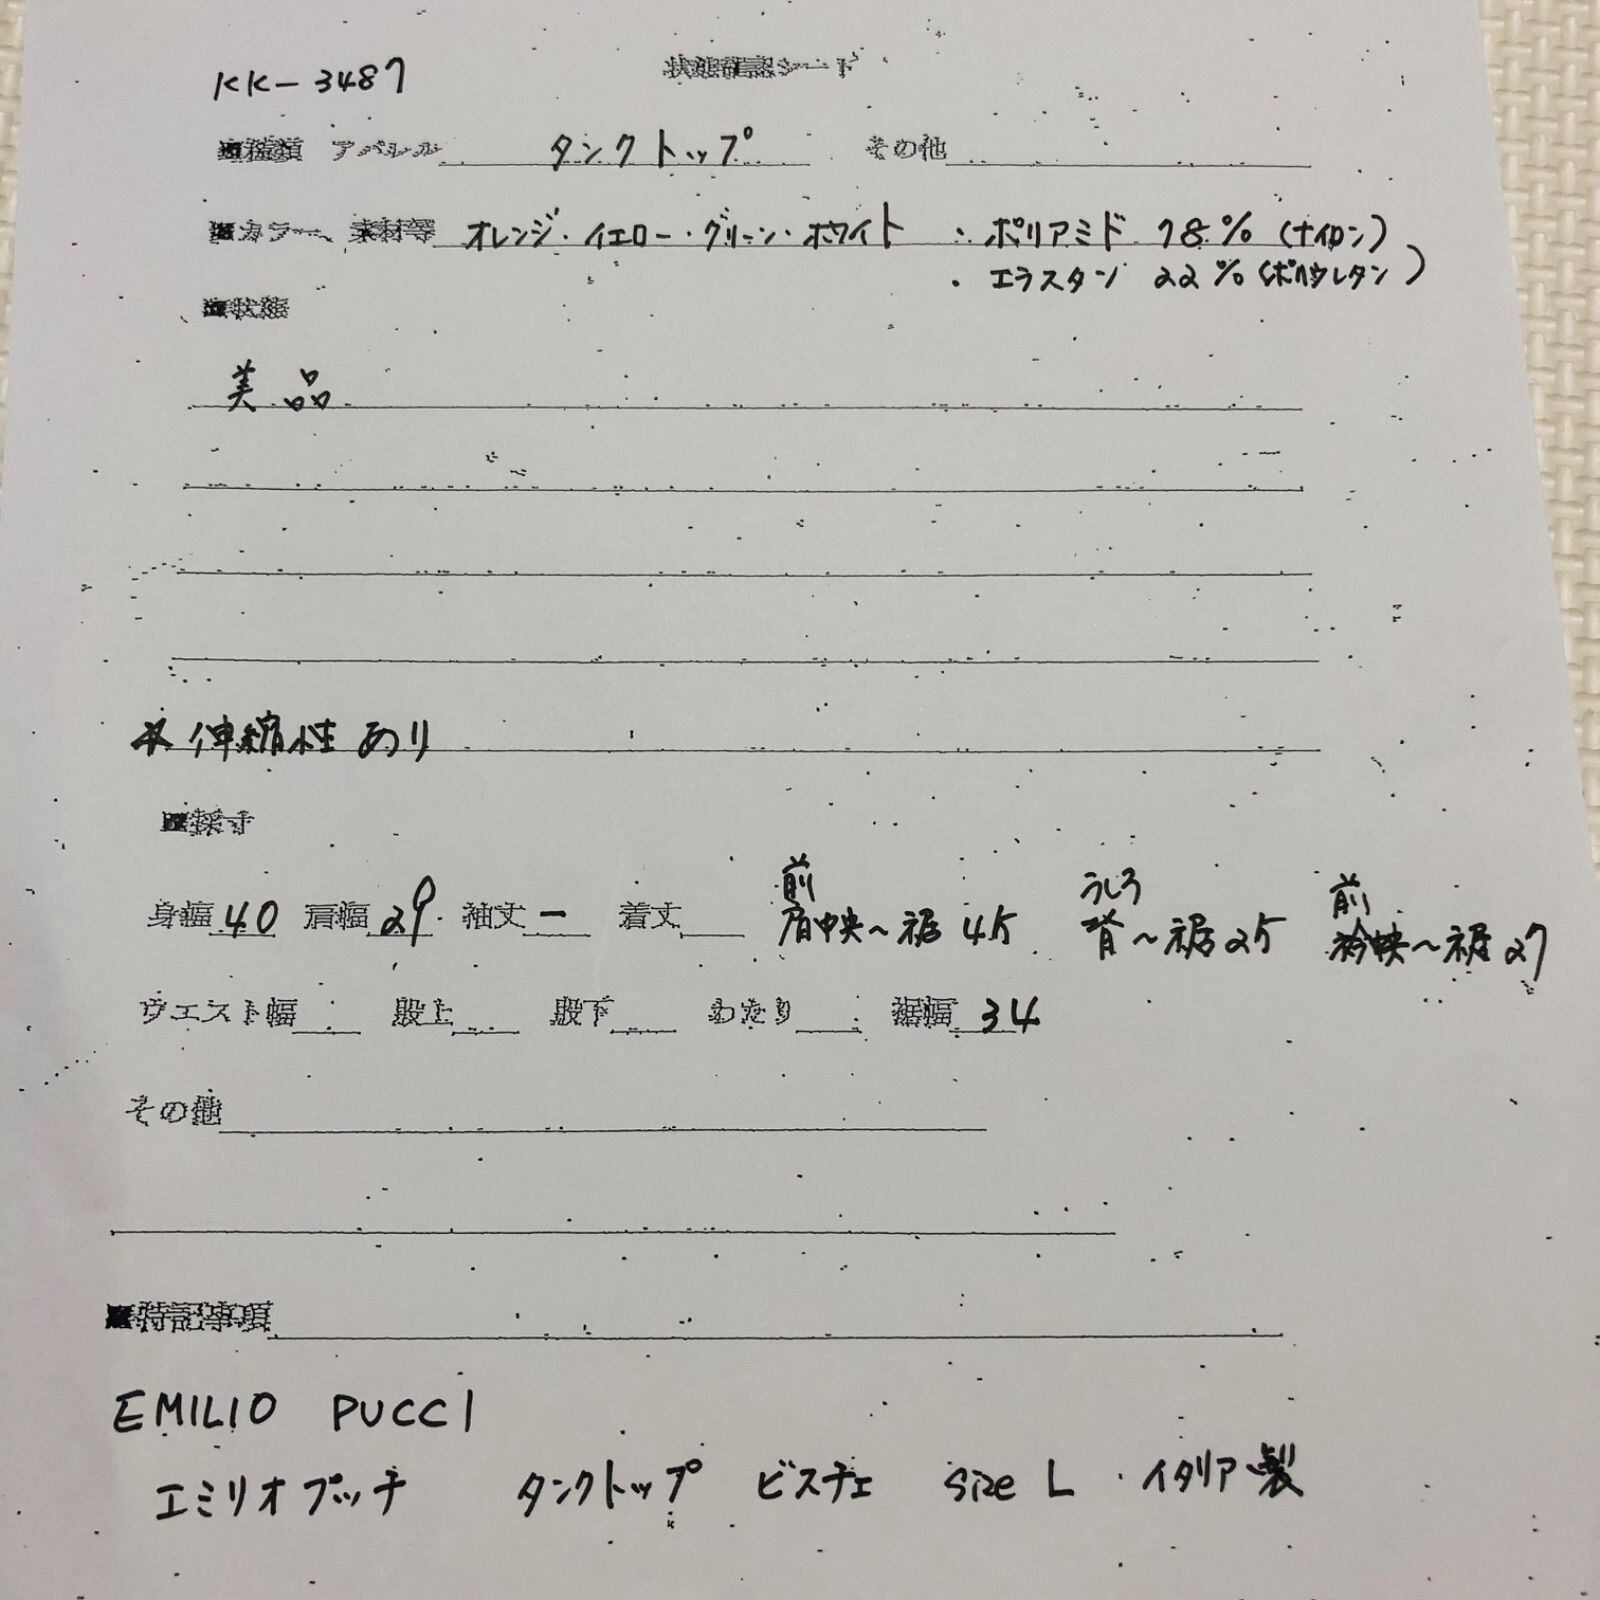 KK-3487
状態確認シート
■種類 アパレル タンクトップ その他
■カラー、素材等 オレンジ・イエロー・グリーン・ホワイト ・ポリアミド 78%(ナイロン)
・エラスタン 22%(ポリウレタン)
■状態
美品
＊伸縮性あり
■採寸
前 うしろ 前
身幅 40 肩幅 29 袖丈 ー 着丈 肩中央~裾 45 背~裾 25 衿中央~裾 27
ウエスト幅 股上 股下 わたり 裾幅 34
その他
■特記事項
EMILIO PUCCI
エミリオプッチ タンクトップ ビスチェ size L ・イタリア製